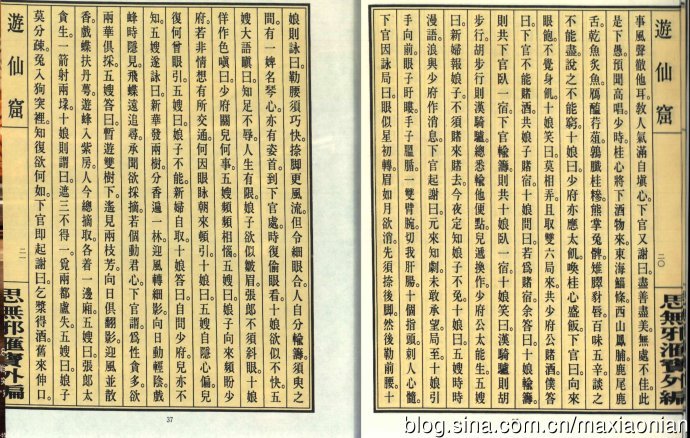 思無邪滙寶外編
遊仙窟
二〇
事風聲徹他耳。敎人氣滿自塡心。下官又謝曰。盡善盡美無處不佳。此
是下愚預聞高唱。少時桂心將下酒物來。東海鯔條西山鳳脯。鹿尾鹿
舌乾魚炙魚。鴈醢荇菹鶉臛桂糝。熊掌兔髀雉臎豺唇。百味五辛談之
不能盡說之不能窮。十娘曰少府亦應太飢。喚桂心盛飯。下官曰向來
眼飽不覺身飢。十娘笑曰莫相弄。且取雙六局來共少府公賭酒。僕答
曰下官不能賭酒。共娘子賭宿。十娘問曰若爲賭宿。余答曰十娘輸籌
則共下官臥一宿。下官輸籌則共十娘臥一宿。十娘笑曰漢騎驢則胡
步行。胡步行則漢騎驢。總悉輸他便點。兒遞換作。少府公太能生。五嫂
曰新婦報娘子。不須賭來賭去。今夜定知娘子不免。十娘曰五嫂時時
漫語。浪與少府作消息。下官起謝曰。元來知劇未敢承望。局至十娘引
手向前。眼子盱䁲。手子膃腯。一雙臂腕切我肝腸。十個指頭刺人心髓。
下官因詠局曰。眼似星初轉。眉如月欲消。先須捺後脚。然後勒前腰。十
娘則詠曰。勒腰須巧快。捺脚更風流。但令細眼合。人自分輸籌。須臾之
間有一婢名琴心。亦有姿首。到下官處時復偷眼看。十娘欲似不快。五
嫂大語嗔曰。知足不辱。人生有限。娘子欲似皺眉。張郎不須斜眼。十娘
佯作色嗔曰。少府關兒何事。五嫂頻頻相惱。五嫂曰娘子向來頻盼少
府。若非情想有所交通。何因眼脉朝來頓引。十娘曰五嫂自隱心偏。兒
復何曾眼引。五嫂曰娘子不能。新婦自取。十娘答曰。自問少府。兒亦不
知。五嫂遂詠曰。新華發兩樹。分香遍一林。迎風轉細影。向日動輕陰。戲
蜂時隱見。飛蝶遠追尋。承聞欲採摘。若個動君心。下官謂爲性貪多。欲
兩華俱採。五嫂答曰。暫遊雙樹下。遙見兩枝芳。向日俱翻影。迎風並散
香。戲蝶扶丹萼。遊蜂入紫房。人今總摘取。各着一邊廂。五嫂曰。張郎太
貪生。一箭射兩垛。十娘則謂曰。遮三不得一。覓兩都盧失。五嫂曰。娘子
莫分疎。兔入狗突裡。知復欲何如。下官即起謝曰。乞漿得酒。舊來伸口。
遊仙窟
二一
思無邪滙寶外編
37
blog.sina.com.cn/maxiaonian